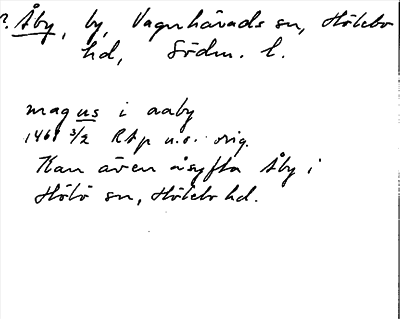 ?. Åby, by, Vagnhärads sn, Hölebo
hd, Södm. l.
magus i aaby
1461 3/2 RAp u.s. orig.
Kan även åsyfta Åby i
Hölö sn, Hölebo hd.